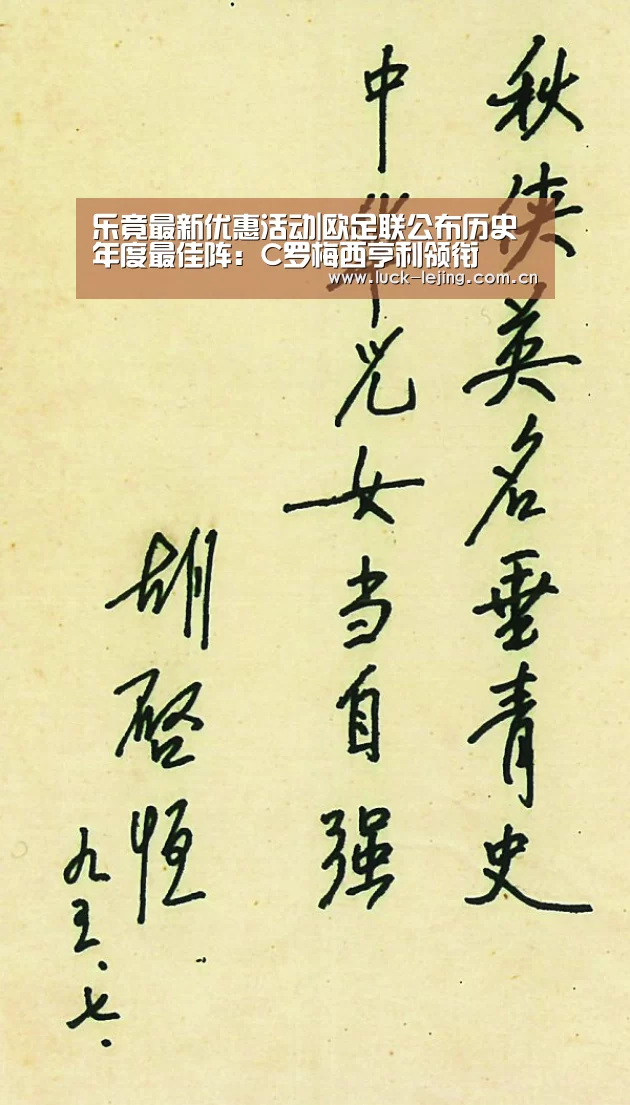 秋侠英名垂青史
中华儿女当自强
胡启恒
九五.七.
乐竟最新优惠活动|欧足联公布历史
年度最佳阵：C罗梅西亨利领衔
www.luck-lejing.com.cn